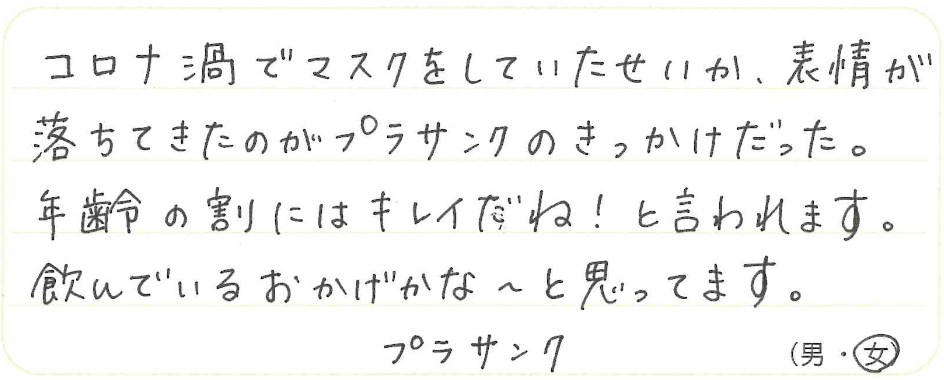 コロナ渦でマスクをしていたせいか、表情が
落ちてきたのがプラサンクのきっかけだった。
年齢の割にはキレイだね!と言われます。
飲んでいるおかげかな~と思ってます。
プラサンク (男・女)